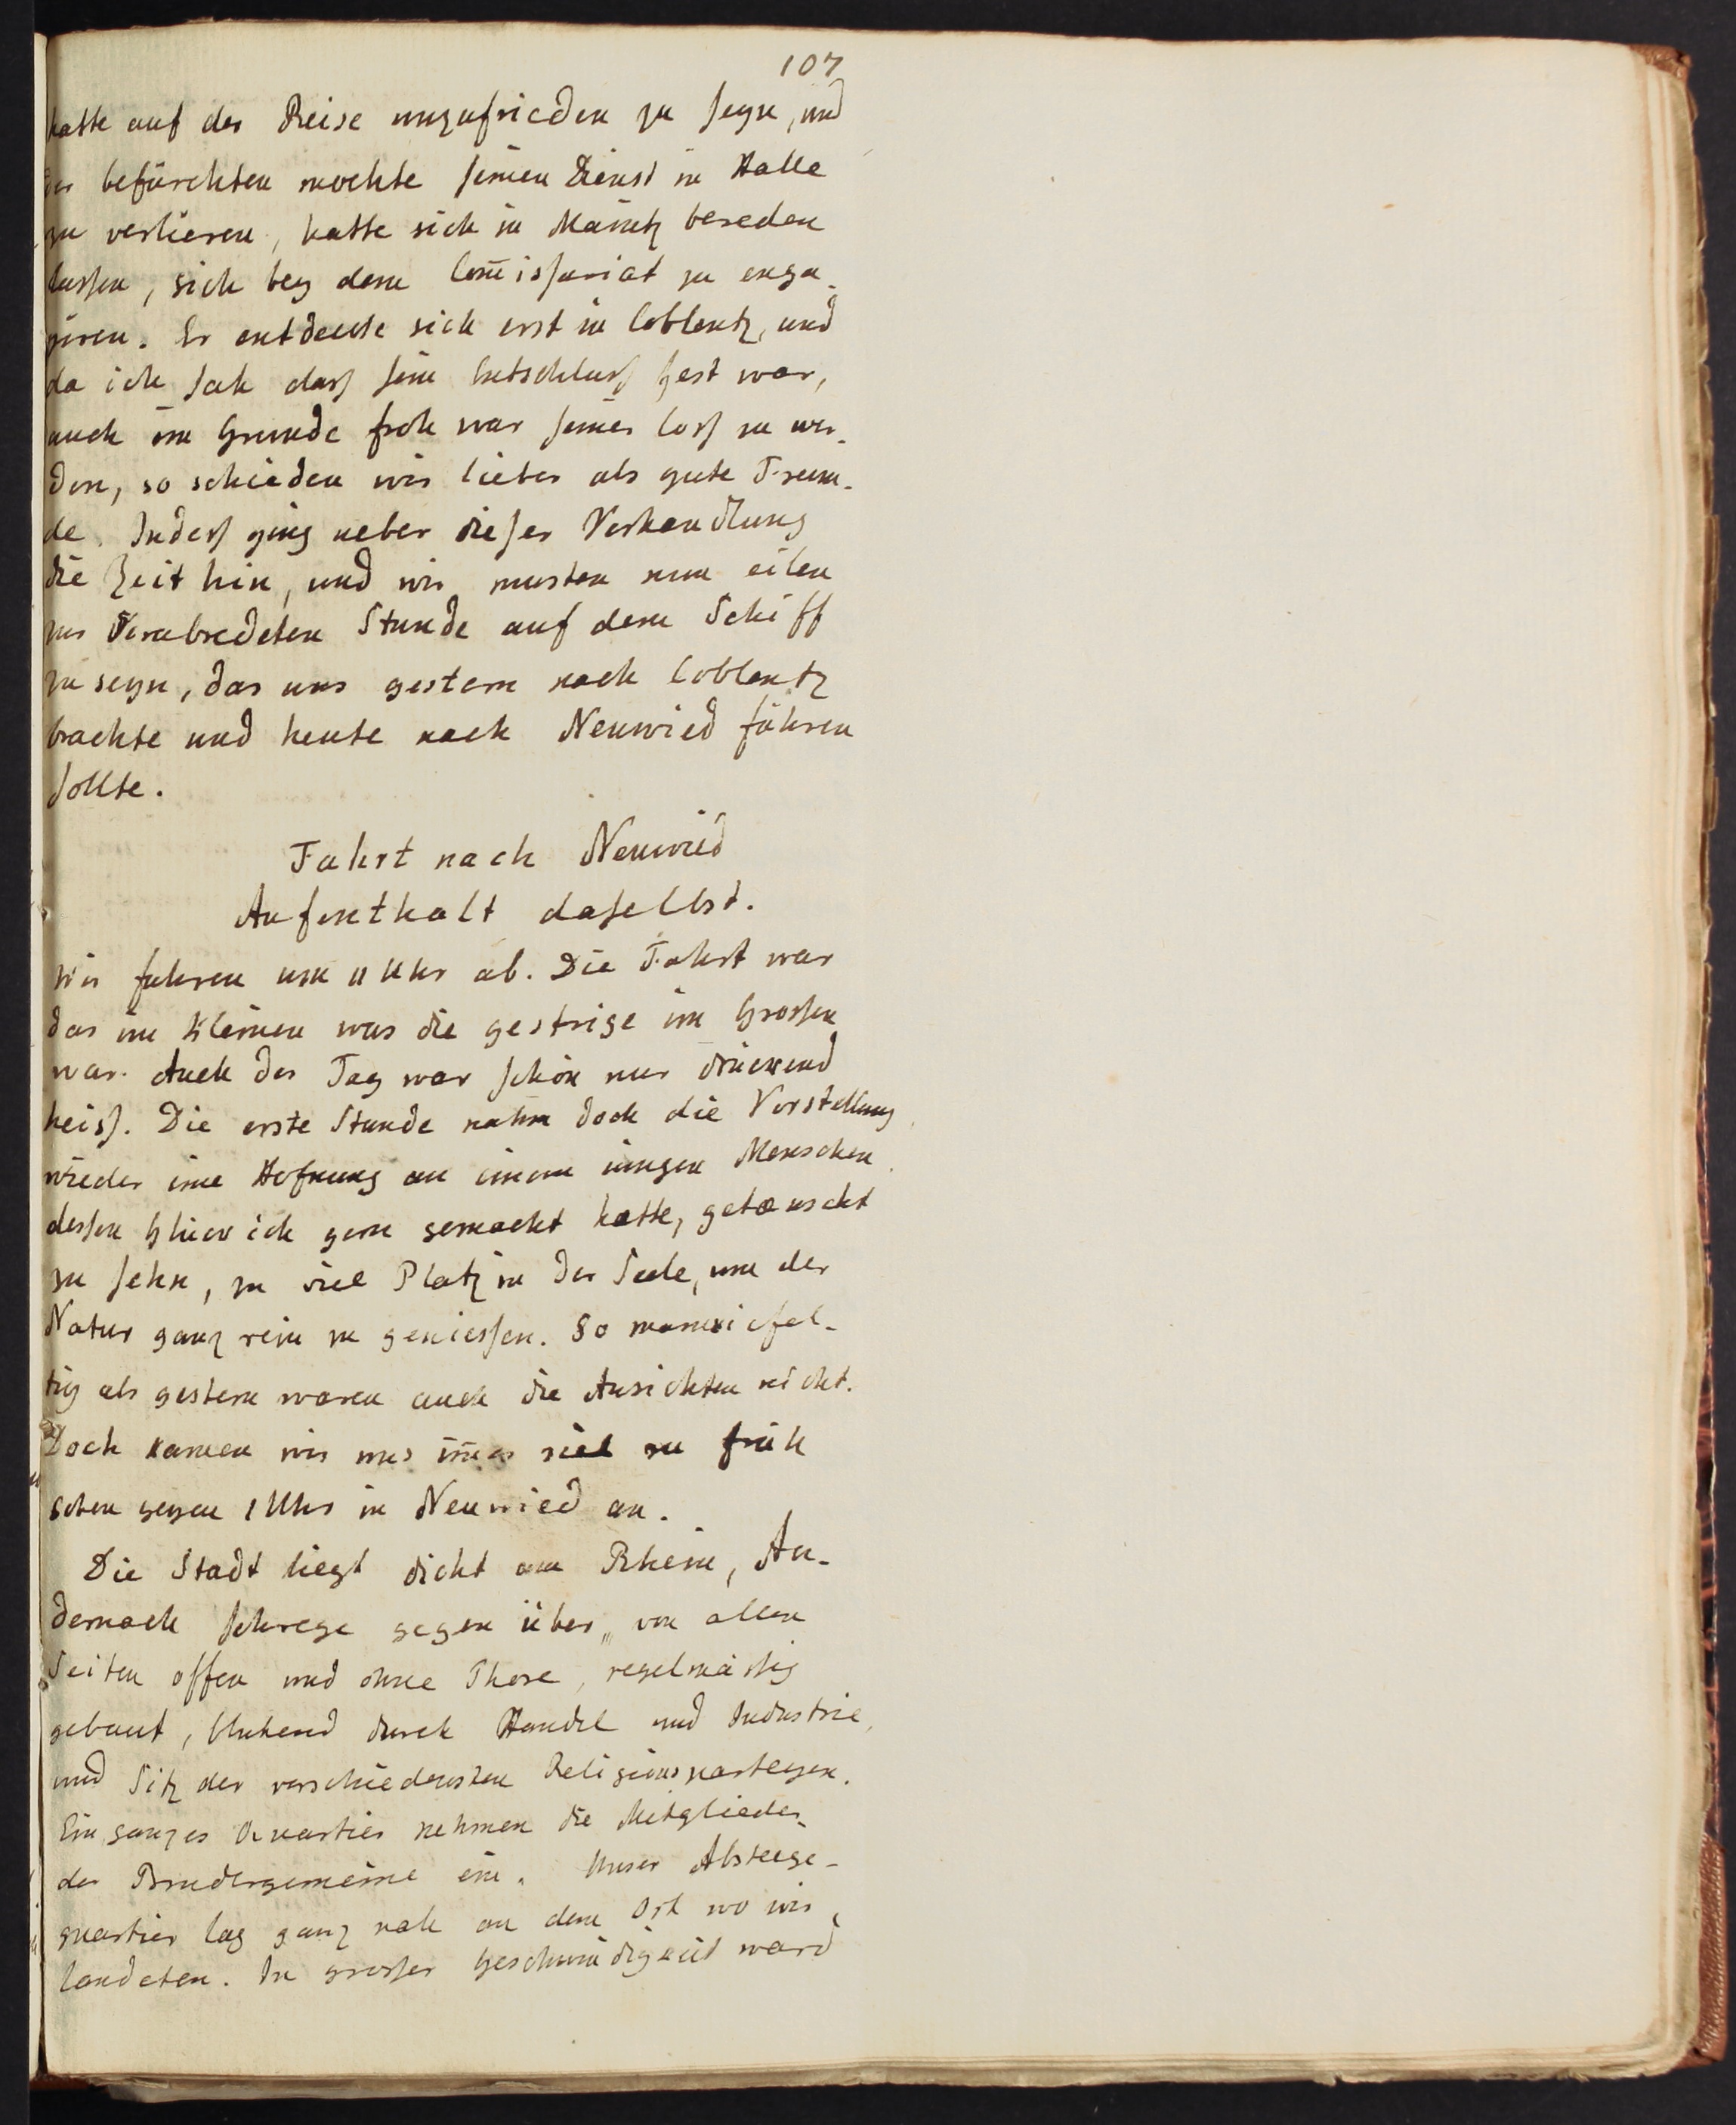 107
hatte auf der Reise unzufrieden zu seyn, und
der befürchten mochte seinen Dienst in Halle
zu verlieren, hatte sich in Maintz bereden
lassen, sich bey dem Com̄issariat zu enga-
giren. Er entdeckte sich erst in Coblentz, und
da ich sah dass sein Entschluss fest war,
auch im Grunde froh war seiner loss zu wer-
den, so schieden wir lieber als gute Freun-
de. Indess ging ueber dieser Verhandlung
die Zeit hin, und wir musten nun eilen
zur Verabredeten Stunde auf dem Schiff
zu seyn, das uns gestern nach Coblentz
brachte und heute nach Neuwied führen
sollte.
Fahrt nach Neuwied
Aufenthalt daselbst.
Wir fuhren um 11 Uhr ab. Die Fahrt war
das im Kleinen was die gestrige im Grossen
war. Auch der Tag war schön nur drückend
heiss. Die erste Stunde nahm doch die Vorstellung
wieder eine Hofnung an einem jungen Menschen
dessen Glück ich gern gemacht hatte, getäuscht
zu sehn, zu viel Platz in der Seele, um der
Natur ganz rein zu geniessen. So mannichfal-
tig als gestern waren auch die Ansichten nicht.
Doch kamen wir uns im̄er viel zu früh
schon gegen 1 Uhr in Neuwied an.
Die Stadt liegt dicht am Rhein, An-
dernach schrege gegen über, von allen
Seiten offen und ohne Thore, regelmässig
gebaut, bluhend durch Handel und Industrie,
und Sitz der verschiedensten Religionspartheyen.
Ein ganzes Quartier nehmen die Mitglieder
der Brudergemeine ein. Unser Absteege-
quartier lag ganz nah an dem Ort wo wir
landeten. In grosser Geschwindigkeit ward